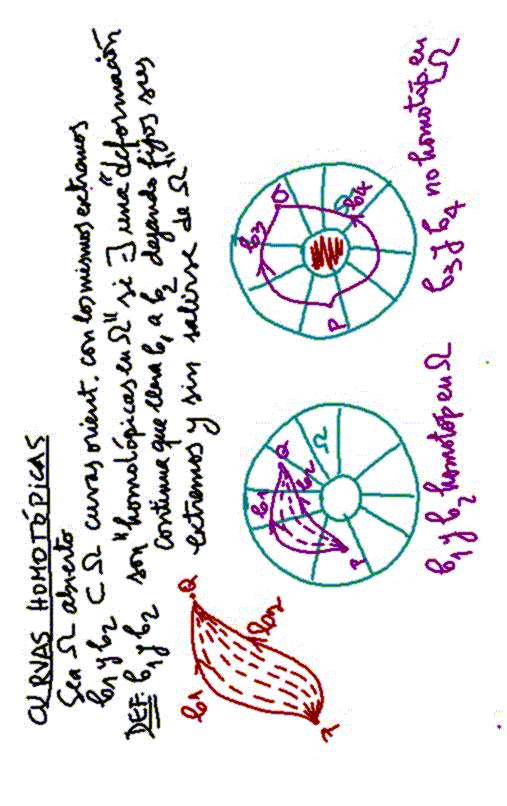 CURVAS HOMOTÓPICAS
Sea Ω abierto
b1 y b2 ⊂ Ω curvas orient. con los mismos extremos
DEF: b1 y b2 son "homotópicas en Ω" si ∃ una "deformación
continua que lleva b1 a b2 dejando fijos sus
extremos y sin salirse de Ω"
b1
Q
b2
P
b1
Q
b2
Ω
P
b1 y b2 homotóp en Ω
b3
Q
Ω
b4
P
b3 y b4 no homotóp. en
Ω